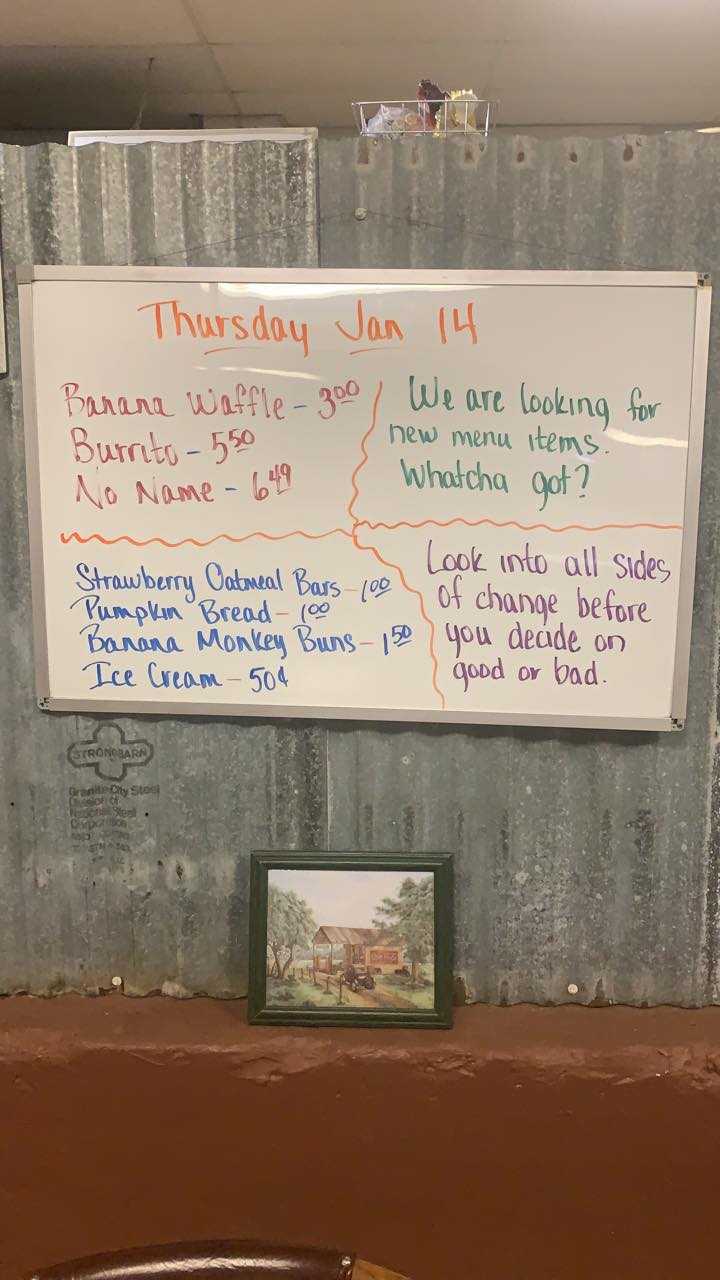 Thursday Jan 14
Banana Waffle - 3 00
Burrito - 5 50
No Name - 6 49
We are looking for
new menu items.
Whatcha got?
Strawberry Oatmeal Bars - 1 00
Pumpkin Bread - 1 00
Banana Monkey Buns - 1 50
Ice Cream - 50¢
Look into all sides
of change before
you decide on
good or bad.
STRONGBARN
Granite City Steel
Division of
National Steel
Corporation